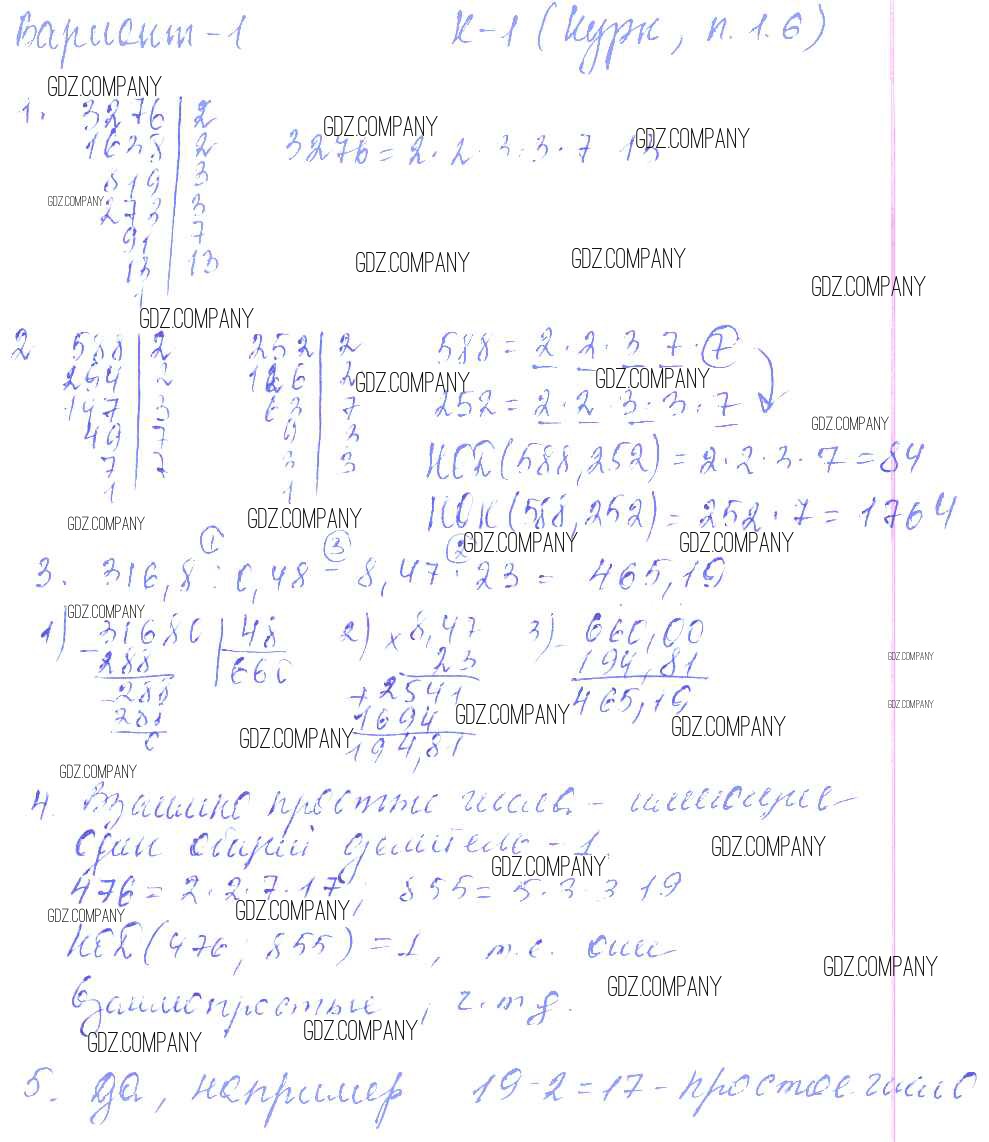 Вариант - 1 К-1 (Курк, п. 1.6)
GDZ.COMPANY
1. 3276 | 2
1638 | 2 3276 = 2 · 2 · 3 · 3 · 7 13
GDZ.COMPANY GDZ.COMPANY
819 | 3
GDZ.COMPANY
273 | 3
91 | 7
13 | 13
1
GDZ.COMPANY GDZ.COMPANY
GDZ.COMPANY
GDZ.COMPANY
2 588 | 2 252 | 2 588 = 2 · 2 · 3 7 · 7
294 | 2 126 | 2
GDZ.COMPANY GDZ.COMPANY
147 | 3 63 | 7 252 = 2 · 2 · 3 · 3 · 7
GDZ.COMPANY
49 | 7 9 | 3
7 | 7 3 | 3 НОД (588, 252) = 2 · 2 · 3 · 7 = 84
1 1
НОК (588, 252) = 252 · 7 = 1764
GDZ.COMPANY GDZ.COMPANY
GDZ.COMPANY GDZ.COMPANY
1 3 2
3. 316,8 : 0,48 - 8,47 · 23 = 465,19
GDZ.COMPANY
1) 31680 | 48 2) × 8,47 3) - 660,00
288 660 23 194,81
288 + 2541 465,19
288 1694
0 194,81
GDZ.COMPANY GDZ.COMPANY
GDZ.COMPANY GDZ.COMPANY GDZ.COMPANY
GDZ.COMPANY
4. Взаимно простые числа - имеющие
один общий делитель - 1.
GDZ.COMPANY GDZ.COMPANY
476 = 2 · 2 · 7 · 17; 855 = 5 · 3 · 3 19
GDZ.COMPANY GDZ.COMPANY
НОД (476; 855) = 1, т.е. они
GDZ.COMPANY
взаимопростые, ч.т.д.
GDZ.COMPANY
GDZ.COMPANY GDZ.COMPANY
5. Да, например 19 - 2 = 17 - простое число